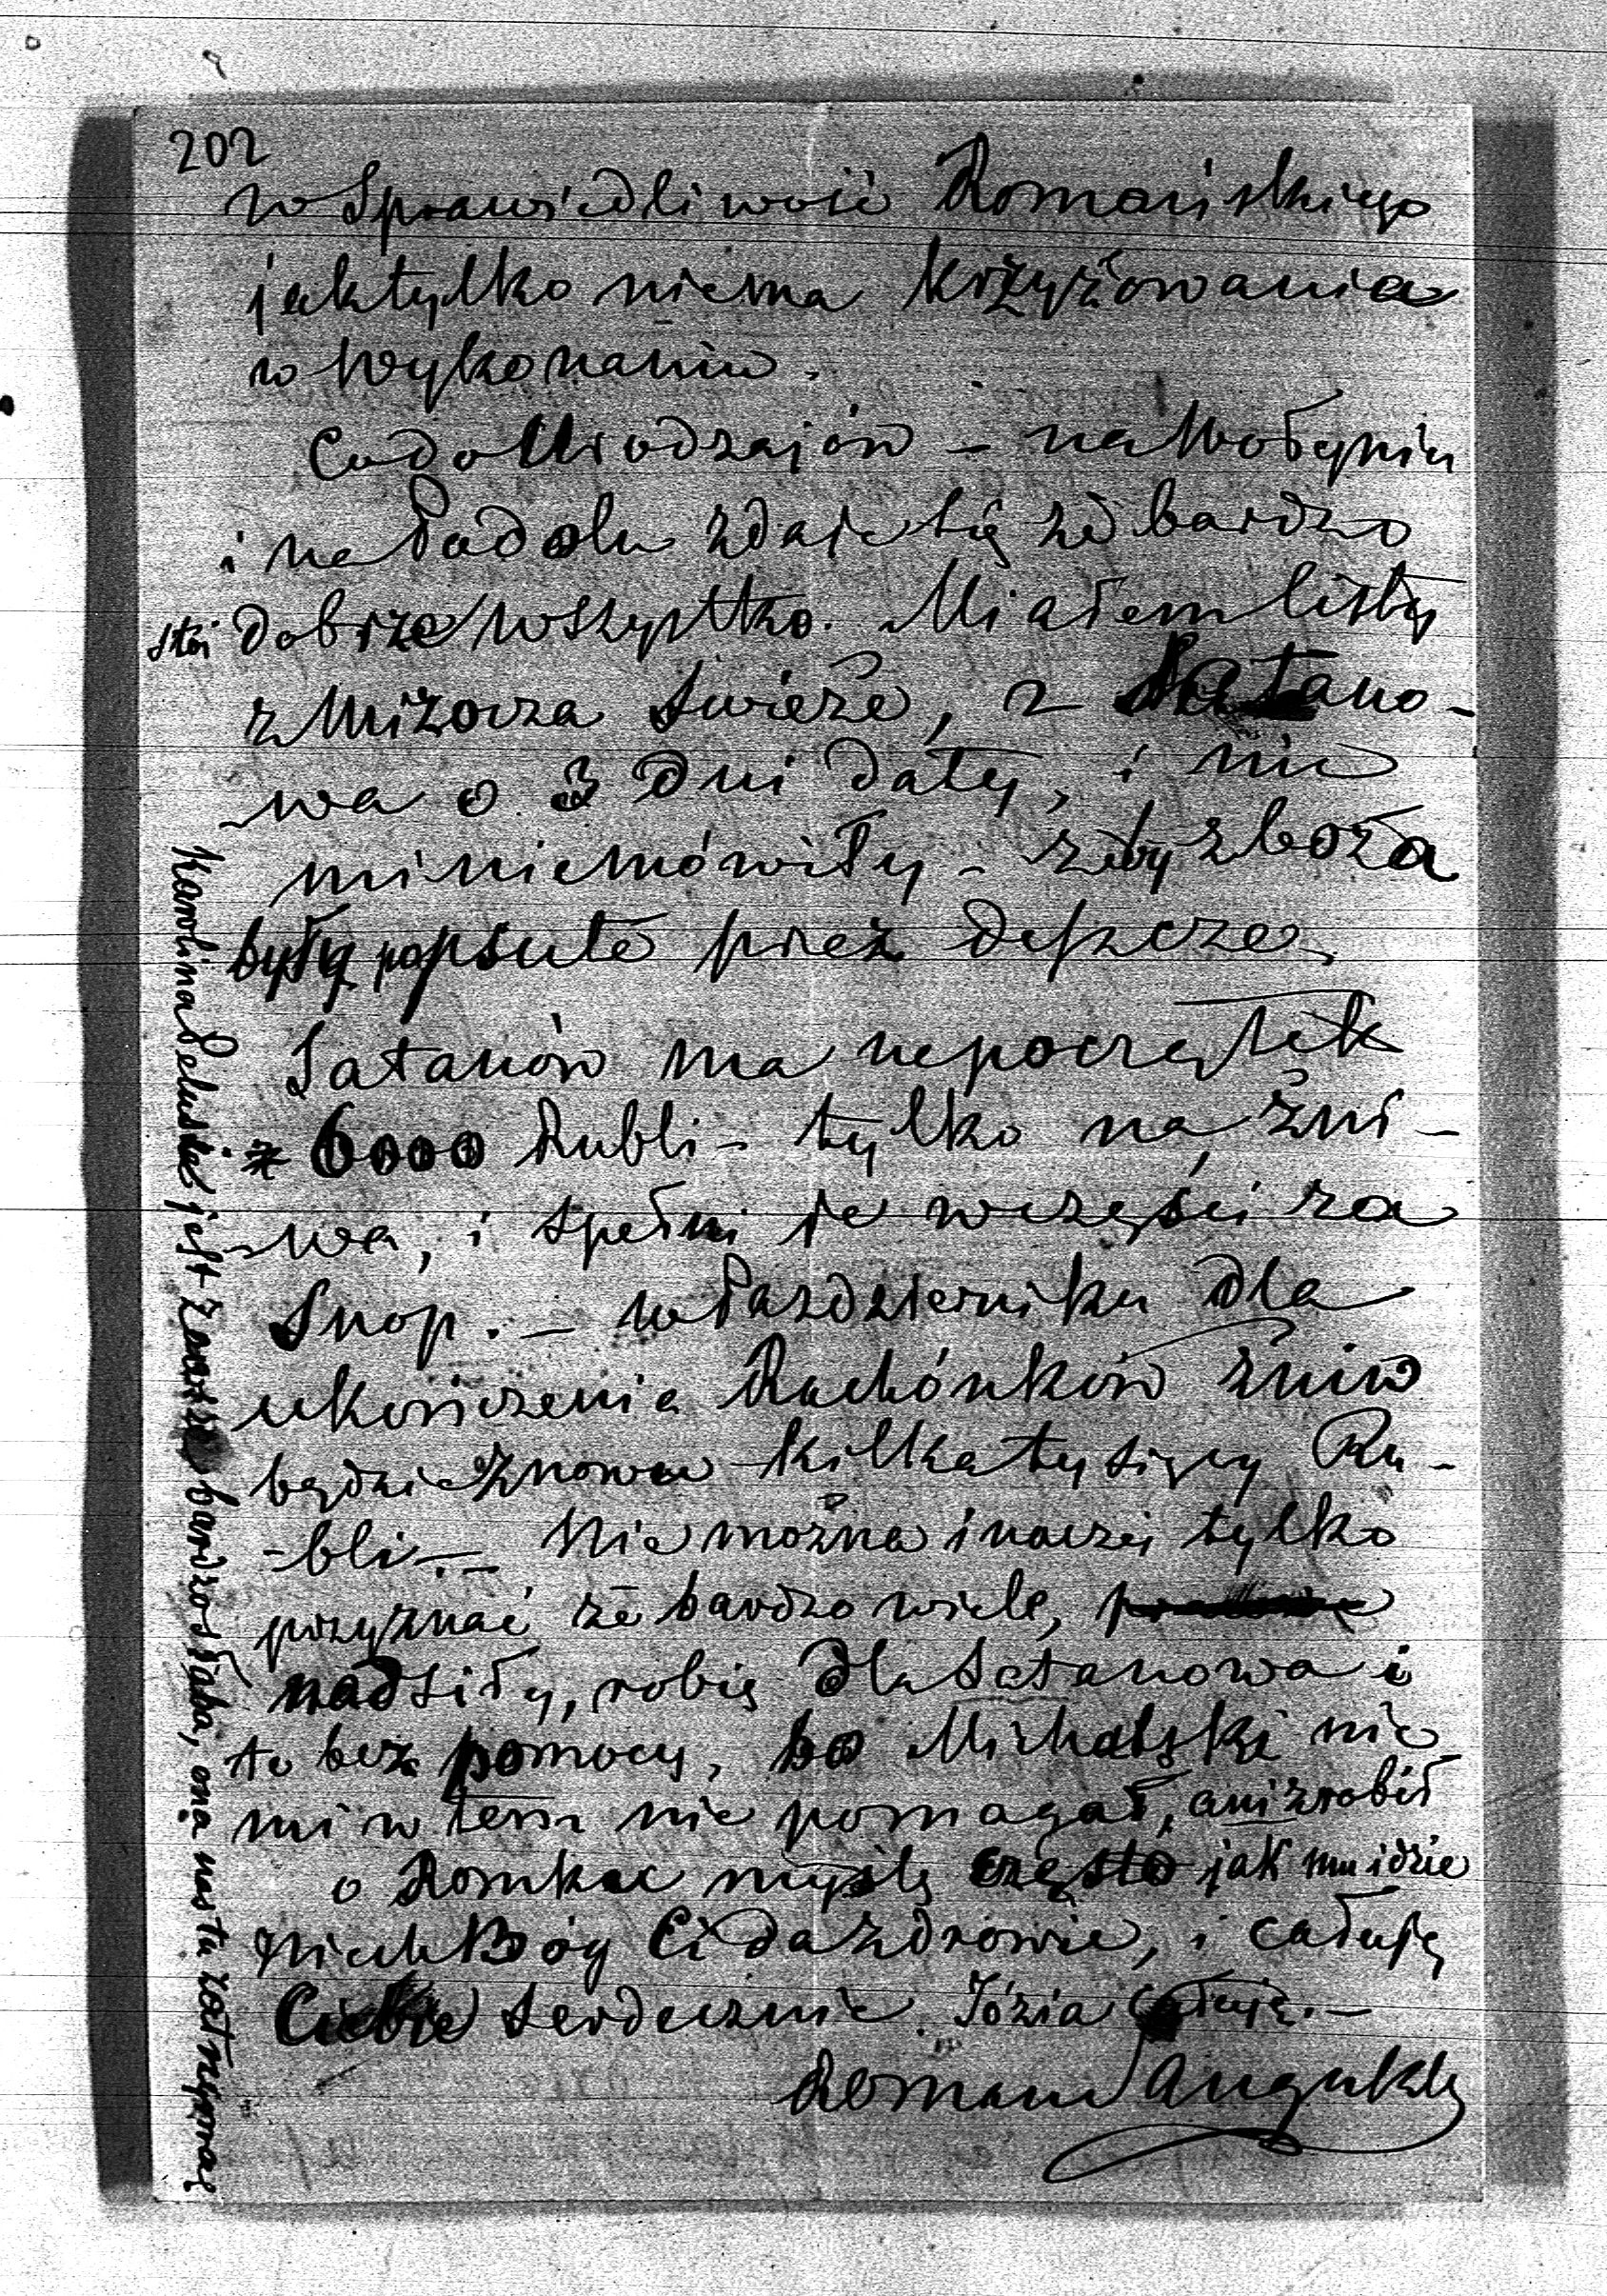 202
w Sprawiedliwość Romańskiego
jak tylko niema krzyżowania
w wykonaniu.
Co do Urodzajów – na Wołyniu
i na Podolu zdaje się że bardzo
stoi dobrze wszystko. Miałem listy
z Mizocza świeże, z Satano-
wa o 3 dni daty, i nic
mi niemówiły – żeby zboża
były popsute przez deszcze.
Satanów ma na początek
6000 Rubli – tylko na żni-
wa, i spełni je w części za
Snop. – w Pazdzierniku dla
ukończenia Rachónków żniw
będzie znowu kilka tysięcy Ru-
-bli. – Nie można inaczej tylko
przyznać że bardzo wiele,
nad siły, robię dla Satanowa i
to bez pomocy, bo Michalski nic
mi w tem nie pomagał, ani zrobił
o Romka myślę często jak mu idzie
Niech Bóg Ci da zdrowie, i całuję
Ciebie serdecznie. Józia całuję. –
Roman Sanguszko
Karolina jest zawsze bardzo słaba, ona nas tu